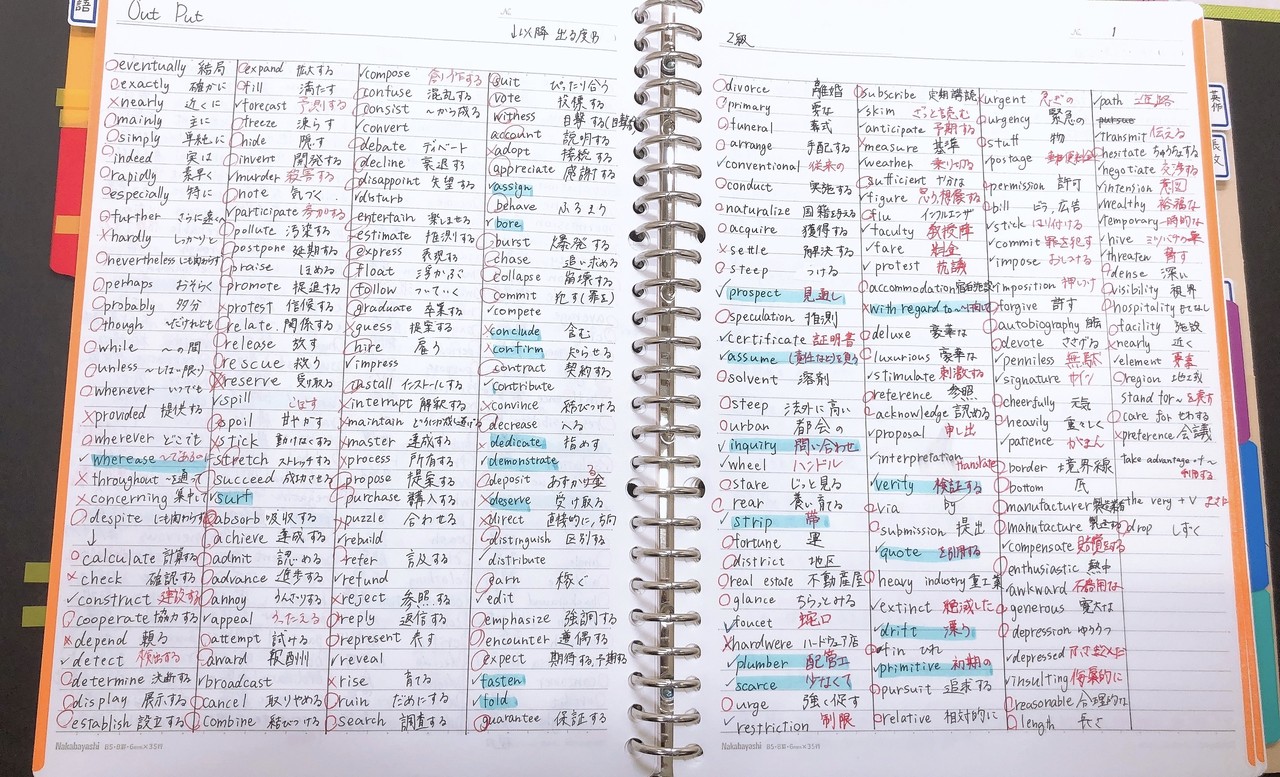 Out Put
↓以降 出る度B
eventually 結局
exactly 確かに
nearly 近くに
mainly 主に
simply 単純に
indeed 実は
rapidly 素早く
especially 特に
further さらに遠い
hardly しっかりと
nevertheless にも関わらず
perhaps おそらく
probably 多分
though ~だけれども
while ~の間
unless ~しない限り
whenever いつでも
provided 提供する
wherever どこで
wherease
throughout
concerning
despite にも関わらず
↓
calculate 計算する
check 確認する
construct 建設する
cooperate 協力する
depend 頼る
detect 検出する
determine 決断する
display 展示する
establish 設立する
expand 拡大する
fill 満たす
forecast 予測する
freeze 凍らす
hide 隠す
invent 開発する
murder 殺害する
note 気づく
participate 参加する
pollute 汚染する
postpone 延期する
praise ほめる
promote 促進する
protest 信仰する
relate 関係する
release 放す
rescue 救う
reserve 受け取る
spill こぼす
spoil 甘やかす
stick 動けなくする
stretch ストレッチする
succeed 成功させる
surf
absorb 吸収する
achieve 達成する
admit 認める
advance 進歩する
annoy うんざりする
appeal うったえる
attempt 試ける
award 報酬
broadcast
cance 取りやめる
combine 結びつける
compose 創作する
confuse 混乱する
consist ~から成る
convert
debate ディベート
decline 衰退する
disappoint 失望する
disturb
entertain 楽しませる
estimate 推測する
express 表現する
float 浮かぶ
follow ついていく
graduate 卒業する
guess 提案する
hire 雇う
impress
install インストールする
interrupt 解釈する
maintain
master 達成する
process 所有する
propose 提案する
purchase 購入する
puzzle 合わせる
rebuild
refer 言及する
refund
reject 参照する
reply 返信する
represent 表す
reveal
rise 育てる
ruin だめにする
search 調査する
suit ぴったり合う
vote 投票する
witness 目撃する(目撃者)
account 説明する
adopt 接続する
appreciate 感謝する
assign
behave ふるまう
bore
burst 爆発する
chase 追い求める
collapse 崩壊する
commit 犯す(罪を)
compete
conclude 含む
confirm 知らせる
contract 契約する
contribute
convince 結びつける
decrease へる
dedicate 指めす
demonstrate
deposit あずかる金
deserve 受け取る
direct 直接的に,方向
distinguish 区別する
distribute
earn 稼ぐ
edit
emphasize 強調する
encounter 遭遇する
expect 期待する 予期する
fasten
fold
guarantee 保証する
Nakabayashi B5・B罫・6mm×35行
2級
1
divorce 離婚
primary 主な
funeral 葬式
arrange 手配する
conventional 従来の
conduct 実施する
naturalize 国籍を与える
acquire 獲得する
settle 解決する
steep つける
prospect 見通し
speculation 推測
certificate 証明書
assume (責任など)を負う
solvent 溶剤
steep 法外に高い
urban 都会の
inquity 問い合わせ
wheel ハンドル
stare じっと見る
rear 養い育てる
strip 帯
fortune 運
district 地区
real estate 不動産屋
glance ちらっとみる
foucet 蛇口
hardwere ハードウェア店
plumber 配管工
scarce 少なくて
urge 強く促す
restriction 制限
subscribe 定期購読
skim ざっと読む
anticipate 予期する
measure 基準
weather 乗りきる
sufficient 十分な
figure 思う,想像する
flu インフルエンザ
faculty 教授陣
fare 料金
protest 抗議
accommodation 宿泊施設
with regard to
deluxe 豪華な
luxurious 豪華な
stimulate 刺激する
preference 参照
acknowledge 認める
proposal 申し出
interpretation translate
verity 検証する
via by
submission 提出
quote を引用する
heavy industry 重工業
extinct 絶滅した
drift 漂う
fin ひれ
primitive 初期の
pursuit 追求する
relative 相対的に
urgent 急ぎの
urgency 緊急の
stuff 物
postage 郵便料金
permission 許可
bill ビラ,広告
stick はり付ける
commit 罪を犯す
impose おしつける
imposition 押しつけ
forgive 許す
autobiography
devote ささげる
penniless 無駄
signature サイン
cheerfully 元気
heavily 重々しく
patience がまん
border 境界線
bottom 底
manufacturer 製造者
manufacture 製造する
compensate 賠償をする
enthusiastic 熱中
awkward 不器用な
generous 寛大な
depression ゆううつ
depressed
insulting 侮辱的に
reasonable 合理的な
length 長さ
path 進路
pursue
transmit 伝える
hesitate ちゅうちょする
negotiate 交渉する
intension 意図
wealthy 裕福な
temporary 一時的な
hive ミツバチの巣
threaten 脅す
dense 深い
visibility 視界
hospitality おもてなし
facility 施設
nearly 近く
element 要素
region 地域
stand for ~を表す
care for せわする
preference 会議
take advantage of ~ 利用する
the very + V まさに
drop しずく
Nakabayashi B5・B罫・6mm×35行
英作
長文
語